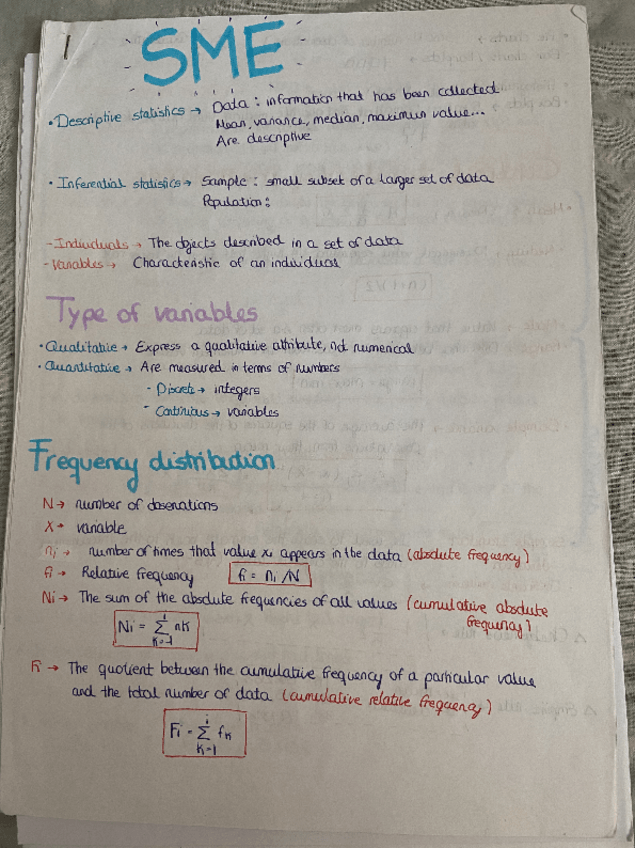 SME
• Descriptive statistics → Data : information that has been collected
Mean, variance, median, maximun value...
Are descriptive
• Inferential statistics → Sample : small subset of a larger set of data
Population :
- Individuals → The objects described in a set of data
- Variables → Characteristic of an individuas
Type of variables
• Qualitative → Express a qualitative attribute, not numerical
• Quantitative → Are measured in terms of numbers
- Discrete → integers
- Continious → variables
Frequency distribution
N → number of observations
X → variable
ni → number of times that value xi appears in the data (absolute frequency)
fi → Relative frequency fi = ni /N
Ni → The sum of the absolute frequencies of all values (cumulative absolute
frequency)
Ni = i∑k=1 nk
Fi → The quotient between the cumulative frequency of a particular value
and the total number of data (cumulative relative frequency)
Fi = i∑k=1 fk